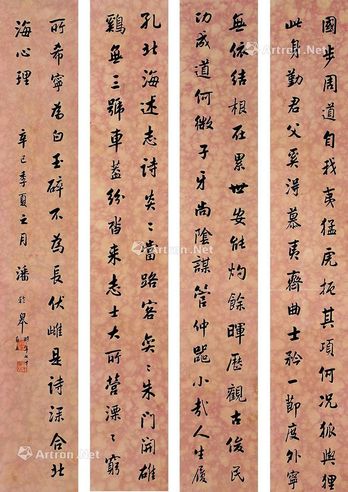 國步周道自我夷猛虎扼其項何況狐與狸
此身勤君父奚得慕夷齊曲士矜一節度外寧
無依結根在累世安能灼餘暉歷觀古俊民
功成道何微子牙尚陰謀管仲器小哉人生履
孔北海述志詩炎〻當路客奐〻朱門開雄
鷄無三號車蓋紛沓來志士大所營漂〻窮
所希寧為白玉碎不為長伏雌是詩深合北
海心理 辛巳季夏之月 潘齡皋
Artron.net